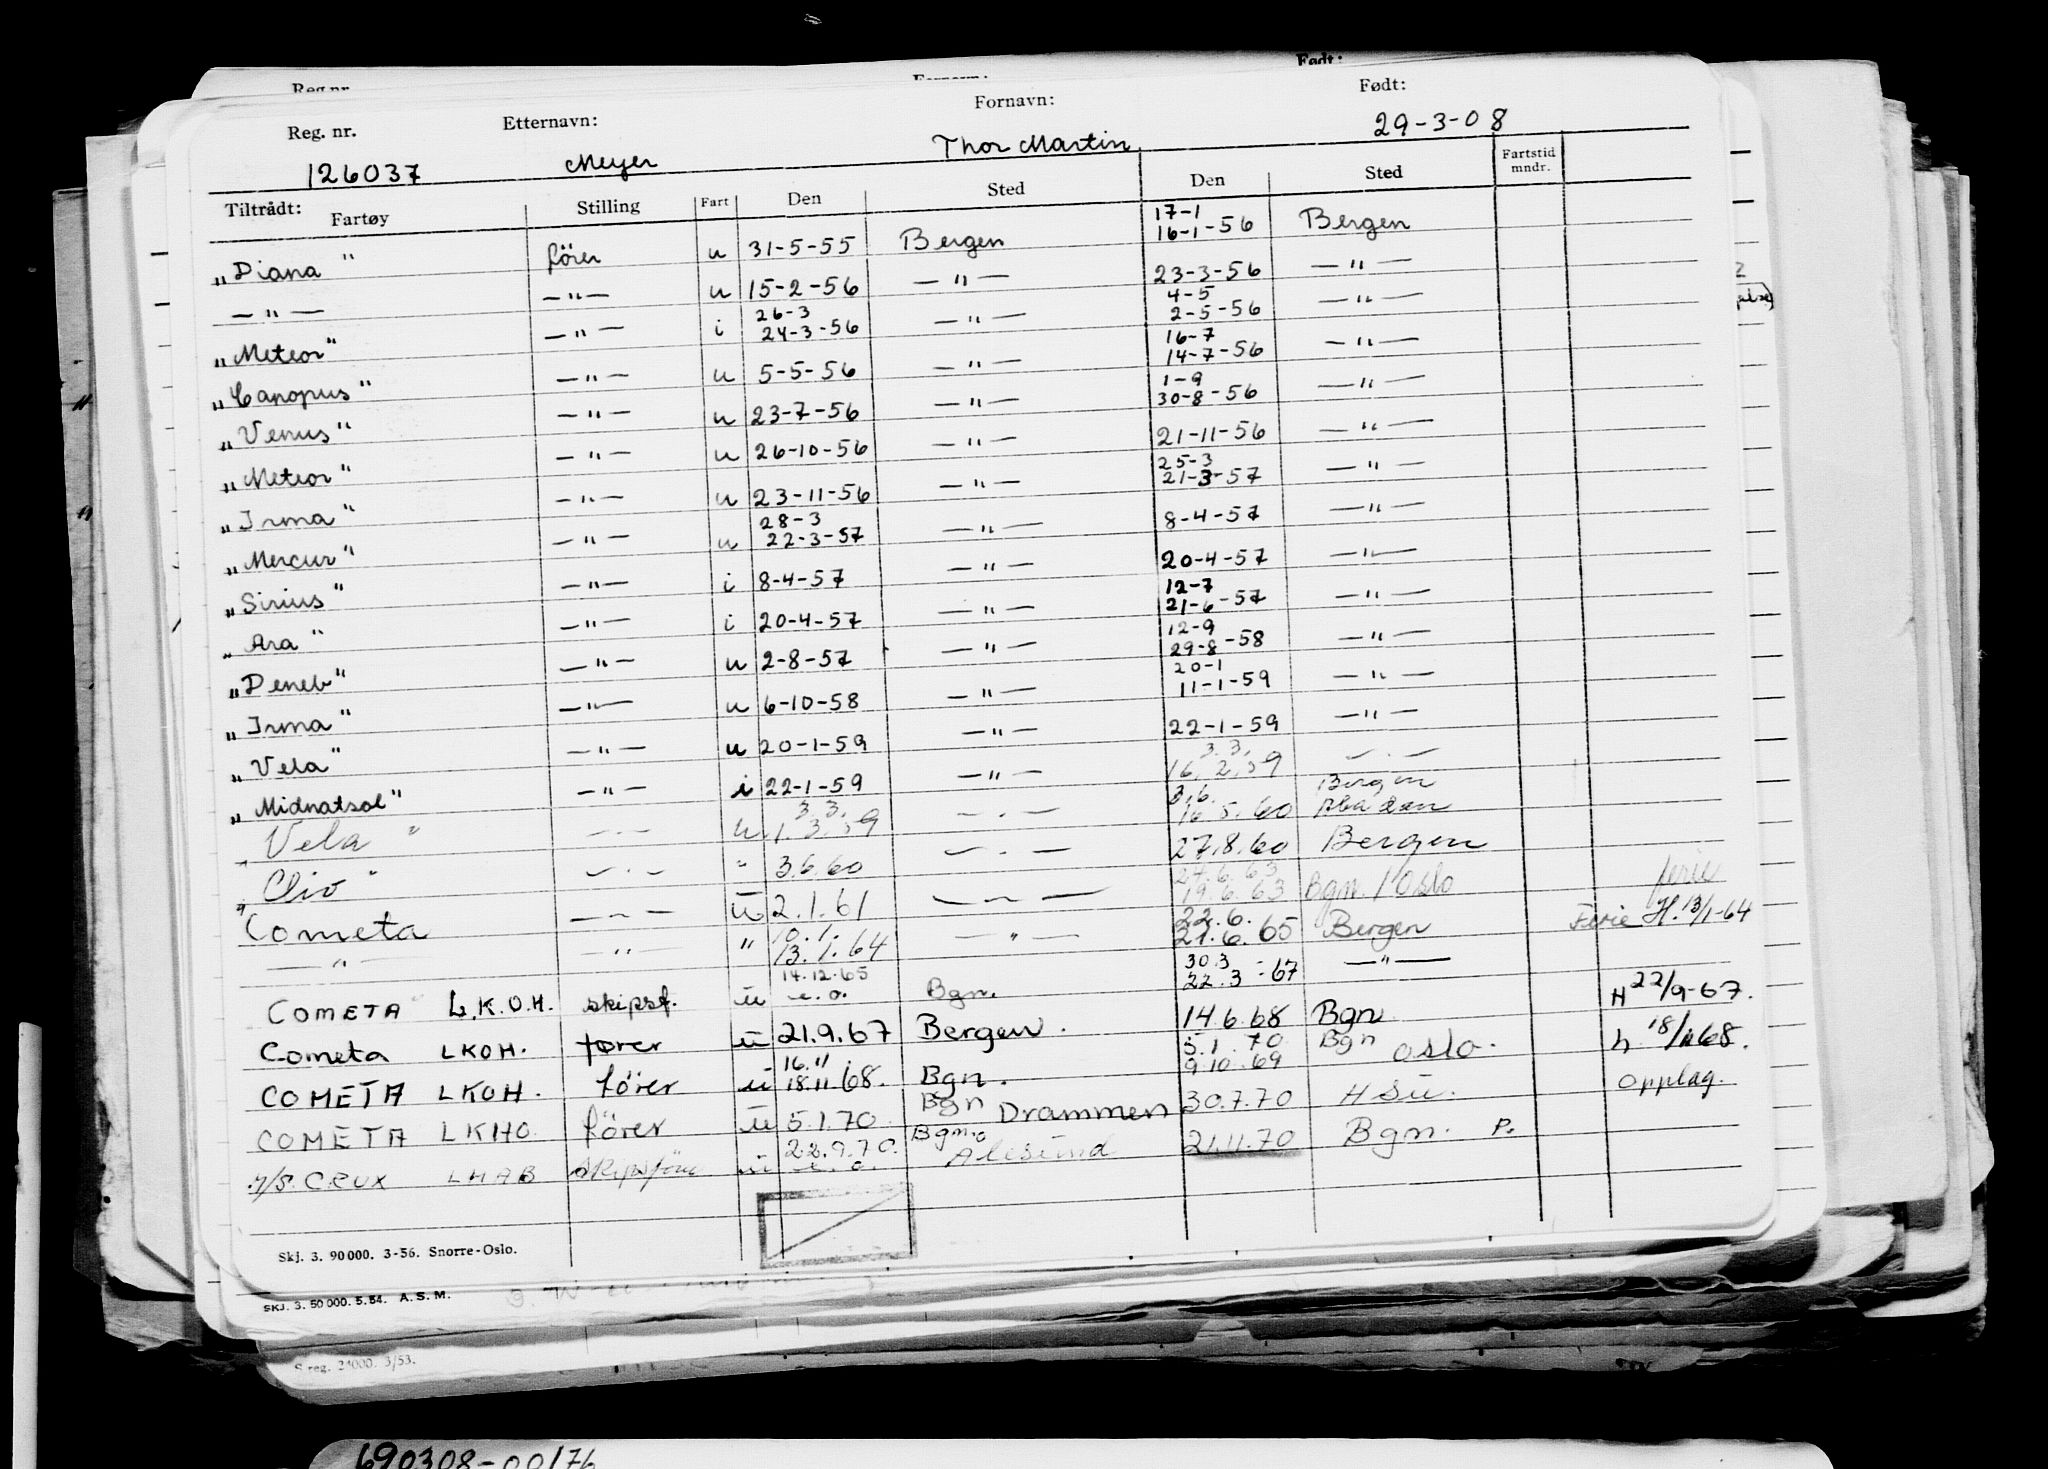 Reg. nr. Etternavn: Fornavn: Født:
126037 Meyer Thor Martin 29-3-08
Tiltrådt: Fartøy Stilling Fart Den Sted Den Sted Fartstid mndr.
17-1
„Diana" fører u 31-5-55 Bergen 16-1-56 Bergen
—"— —"— u 15-2-56 —"— 23-3-56 —"—
26-3 4-5
„Meteor" —"— i 24-3-56 —"— 2-5-56 —"—
16-7
„Canopus" —"— u 5-5-56 —"— 14-7-56 —"—
1-9
„Venus" —"— u 23-7-56 —"— 30-8-56 —"—
„Meteor" —"— u 26-10-56 —"— 21-11-56 —"—
25-3
„Irma" —"— u 23-11-56 —"— 21-3-57 —"—
28-3
„Mercur" —"— u 22-3-57 —"— 8-4-57 —"—
„Sirius" —"— i 8-4-57 —"— 20-4-57 —"—
12-7
„Ara" —"— i 20-4-57 —"— 21-6-57 —"—
12-9
„Deneb" —"— u 2-8-57 —"— 29-8-58 —"—
20-1
„Irma" —"— u 6-10-58 —"— 11-1-59 —"—
„Vela" —"— u 20-1-59 —"— 22-1-59 —"—
3.3.
„Midnatsol" —"— i 22-1-59 —"— 16.2.59 —"—
3.3. 3.6. Bergen
„Vela" —"— u 1.3.59 —"— 16.5.60 Abadan
„Clio" —"— " 3.6.60 —"— 27.8.60 Bergen
24.6.63 ferie
Cometa —"— u 2.1.61 —"— 19.6.63 Bgn./Oslo
10.1. 22.6.
—"— —"— " 13.1.64 —"— 21.6.65 Bergen Ferie H. 13/1-64
14.12.65 30.3
COMETA L.K.O.H. skipsf. u e.o. Bgn. 22.3-67 —"—
Cometa LKOH. fører u 21.9.67 Bergen. 14.6.68 Bgn H 22/9-67.
16.11 5.1.70 Bgn
COMETA LKOH. fører u 18.11.68. Bgn. 9.10.69 Oslo. h 18/11 68.
Bgn
COMETA LKHO fører u 5.1.70 Drammen 30.7.70 H Su. Opplag.
22.9.70. Bgn.
M/S. CRUX LHAB skipsfører u e.o. Ålesund 21.11.70 Bgn. P.
Skj. 3. 90000. 3-56. Snorre-Oslo.
SKJ. 3. 50 000. 5.54. A. S. M.
S reg. 24000. 3/53.
690308-00176